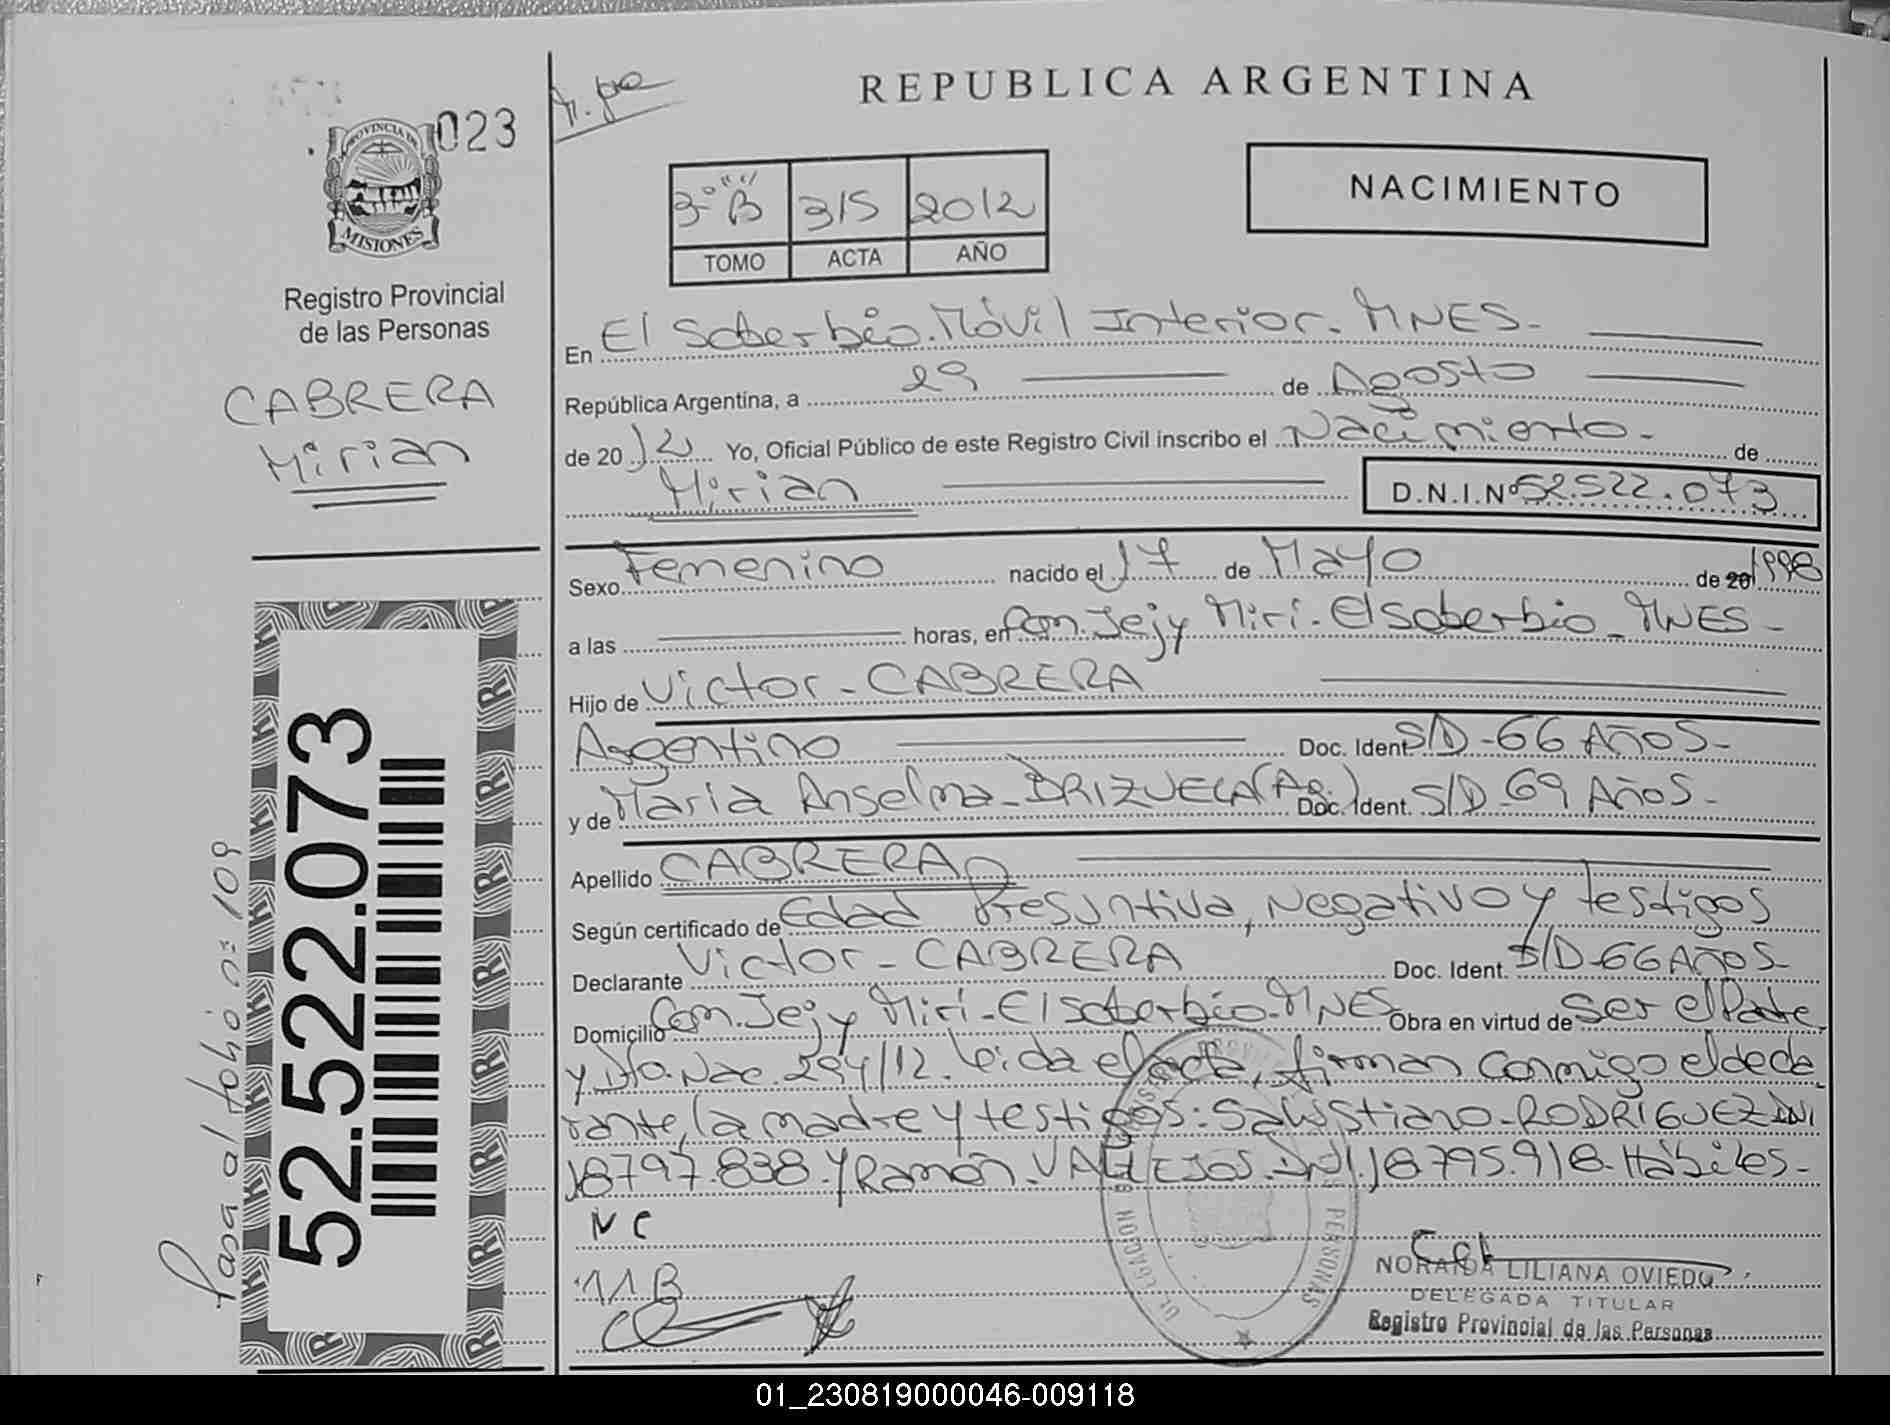 023
PROVINCIA DE
MISIONES
Registro Provincial
de las Personas
CABRERA
Mirian
52.522.073
Pasa al folio nº 109
REPUBLICA ARGENTINA
NACIMIENTO
3º "B" 315 2012
TOMO ACTA AÑO
En El Soberbio. Móvil Interior. MNES-
República Argentina, a 29 de Agosto
de 2012 Yo, Oficial Público de este Registro Civil inscribo el Nacimiento- de
Mirian D.N.I.Nº 52.522.073
Sexo Femenino nacido el 17 de Mayo de 20 1998
a las horas, en Com. Jejy Miri- El Soberbio- MNES-
Hijo de Victor- CABRERA
Argentino Doc. Ident. S/D-66 AÑOS-
y de Maria Anselma- BRIZUELA (Ag.) Doc. Ident. S/D-69 AÑOS-
Apellido CABRERA
Según certificado de Edad Presuntiva, Negativo y testigos
Declarante Victor- CABRERA Doc. Ident. S/D-66 AÑOS-
Domicilio Com. Jejy Miri- El Soberbio- MNES Obra en virtud de Ser el Padre
y Dto. Nac. 294/12. Leida el acta, firman conmigo el decla
rante, la madre y testigos: Salustiano- RODRIGUEZ DNI
18797.838- y Ramón- VALLEJOS- DNI. 18795.918- Hábiles-
V C
M B
NORA LILIANA OVIEDO
DELEGADA TITULAR
Registro Provincial de las Personas
01_230819000046-009118